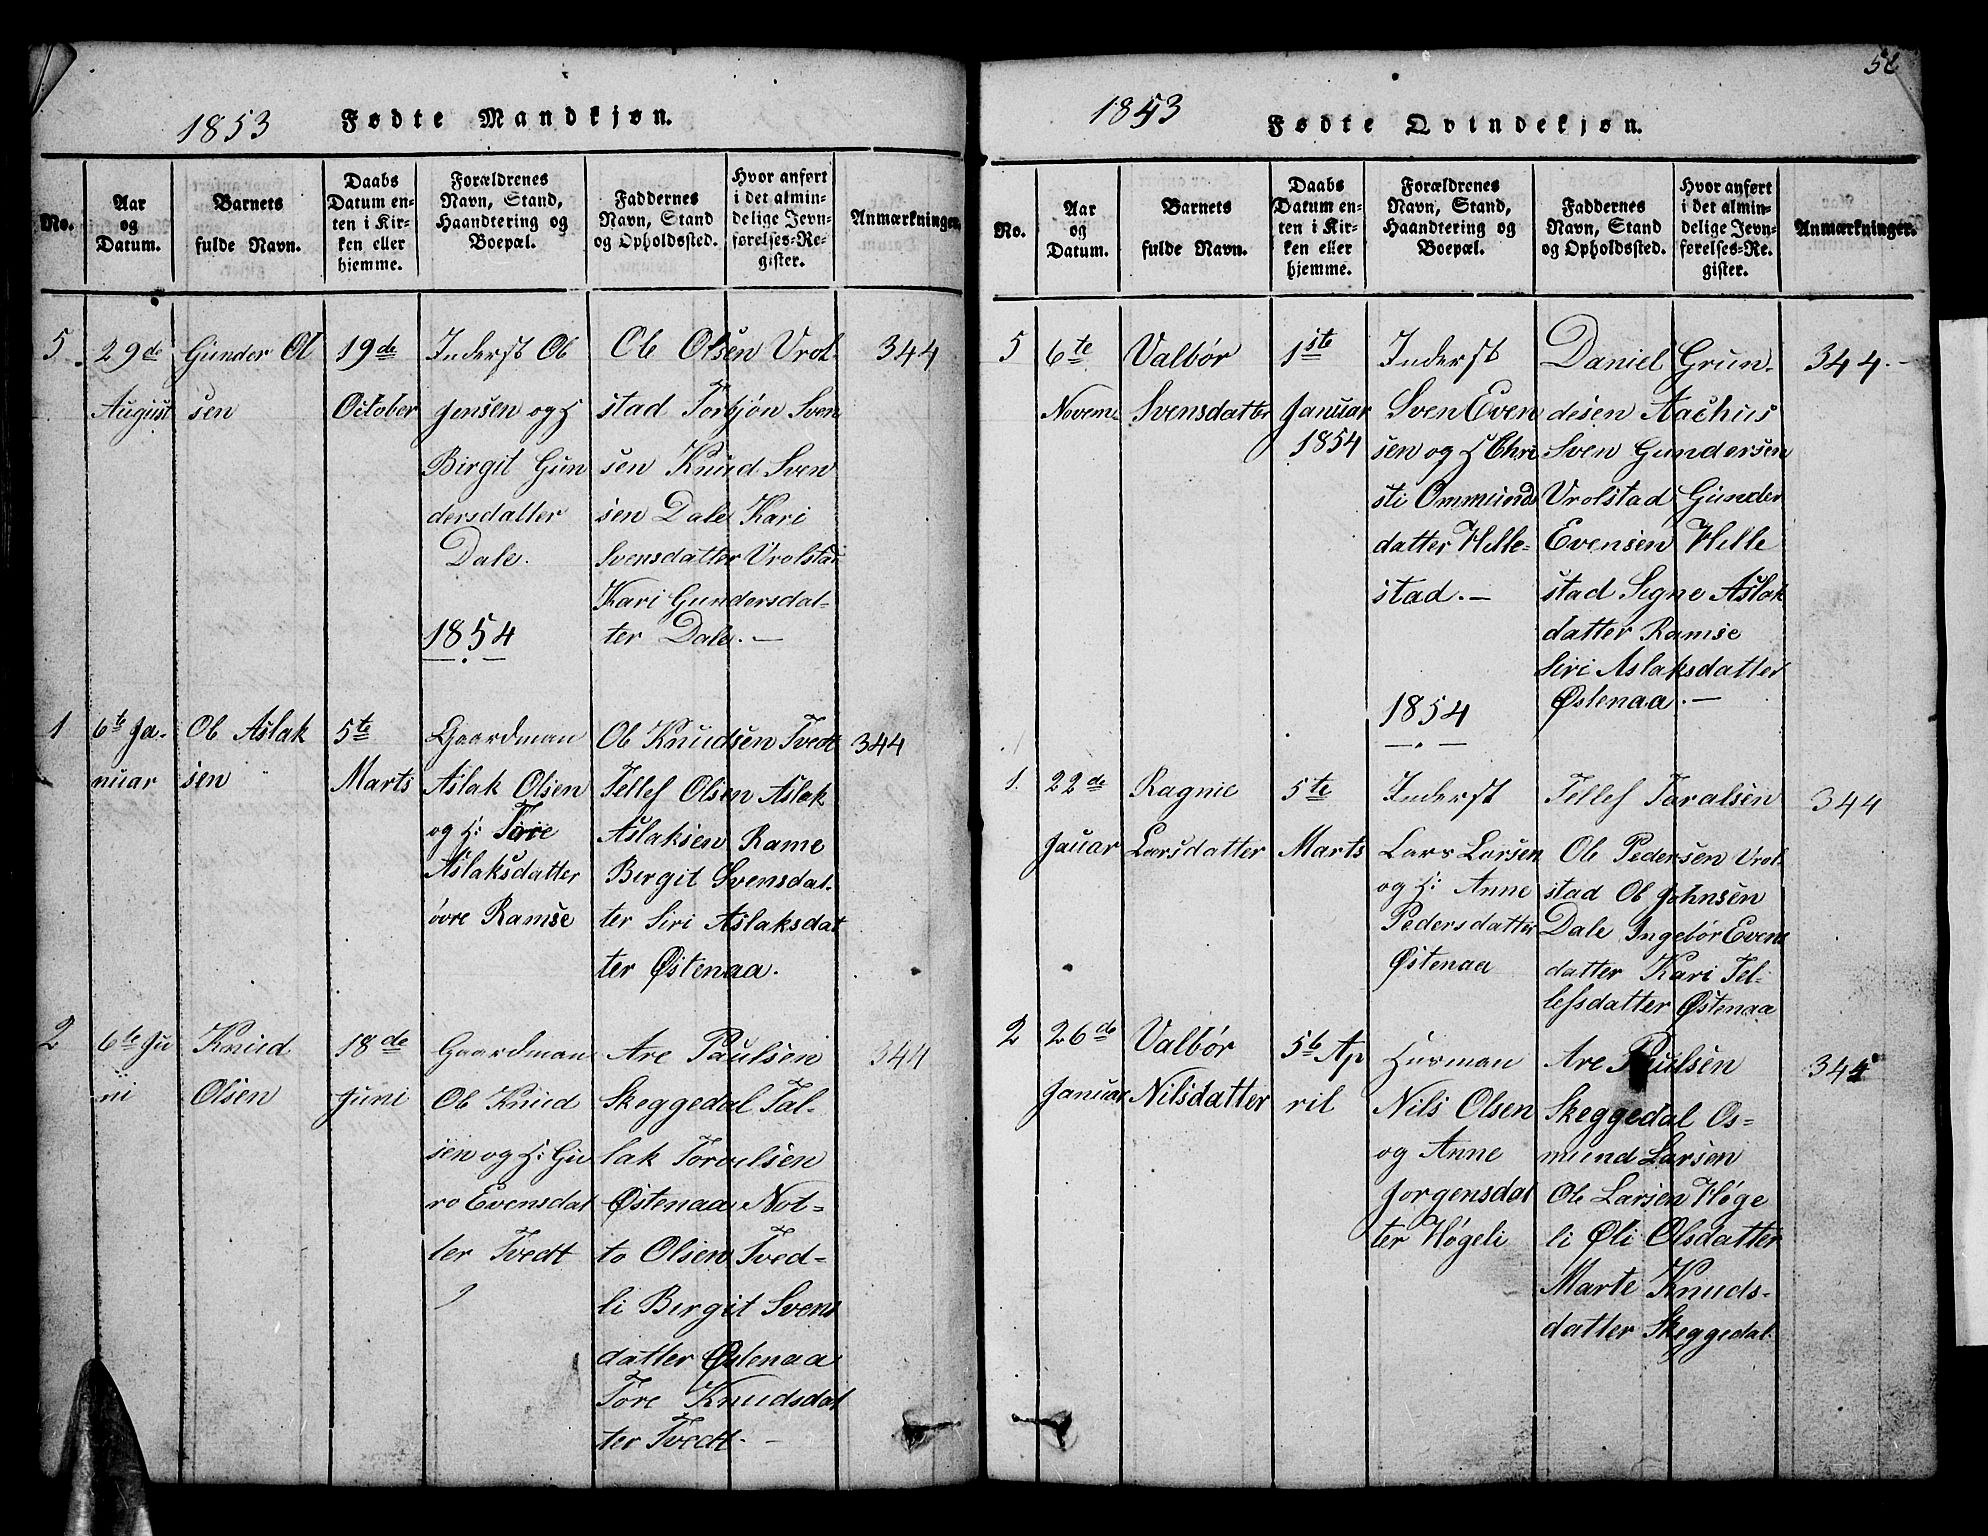 1853 Fødte Mandkjøn.
No.
Aar
og
Datum.
Barnets
fulde Navn.
Daabs
Datum en-
ten i Kir-
ken eller
hjemme.
Forældrenes
Navn, Stand,
Haandtering og
Boepæl.
Faddernes
Navn, Stand
og Opholdssted.
Hvor anført
i det almin-
delige Jevn-
førelses-Re-
gister.
Anmærkninger.
5
29de
August
Gunder Ol
sen
19de
October
Inderst Ole
Jensen og H
Birgit Gun
dersdatter
Dale.
Ole Olsen Vrol-
stad Torbjön Sven
sen Knud Sven
sen Dale Kari
Svensdatter Vrolstad
Kari Gundersdat-
ter Dale. —
344
1854
1
6te Ja-
nuar
Ole Aslak
sen
5te
Marts
Gaardman
Aslak Olsen
og H: Tore
Aslaksdatter
övre Ramse
Ole Knudsen Tvedt
Tellef Olsen Aslak
Aslaksen Rame
Birgit Svensdat-
ter Siri Aslaksdat
ter Østenaa.
344
2
6te Ju
ni
Knud
Olsen
18de
Juni
Gaardman
Ole Knud
sen og H: Gu
ro Evensdat
ter Tvedt
Are Paulsen
Skeggedal Tal-
lak Torvelsen
Østenaa Not-
to Olsen Tved-
li Birgit Svens
datter Østenaa
Tore Knudsdat
ter Tvedt. —
344
52
1853 Fødte Qvindekjøn.
No.
Aar
og
Datum.
Barnets
fulde Navn.
Daabs
Datum en-
ten i Kir-
ken eller
hjemme.
Forældrenes
Navn, Stand,
Haandtering og
Boepæl.
Faddernes
Navn, Stand
og Opholdssted.
Hvor anført
i det almin-
delige Jevn-
førelses-Re-
gister.
Anmærkninger.
5
6te
Novem
Valbør
Svensdatter
1ste
Januar
1854
Inderst
Sven Even
sen og H Chri
sti Ommunds
datter Hille-
stad. —
Daniel Grun-
desen Aachus
Sven Gundersen
Vrolstad Gunder
Evensen Hille
stad Signe Aslak
datter Ramse
Siri Aslaksdatter
Østenaa. —
344. —
1854
1.
22de
Jauar
Ragnie
Larsdatter
5te
Marts
Inderst
Lars Larsen
og H: Anne
Pedersdatter
Østenaa
Tellef Taralsen
Ole Pedersen Vrol
stad Ole Johnsen
Dale Ingebör Evens
datter Kari Tel-
lefsdatter Østenaa
344
2
26de
Januar
Valbør
Nilsdatter
5te Ap
ril
Husman
Nils Olsen
og Anne
Jorgensdat
ter Høgeli
Are Paulsen
Skeggedal Os-
mund Larsen
Ole Larsen Høge
li Øli Olsdatter
Marte Knuds-
datter Skeggedal.
344